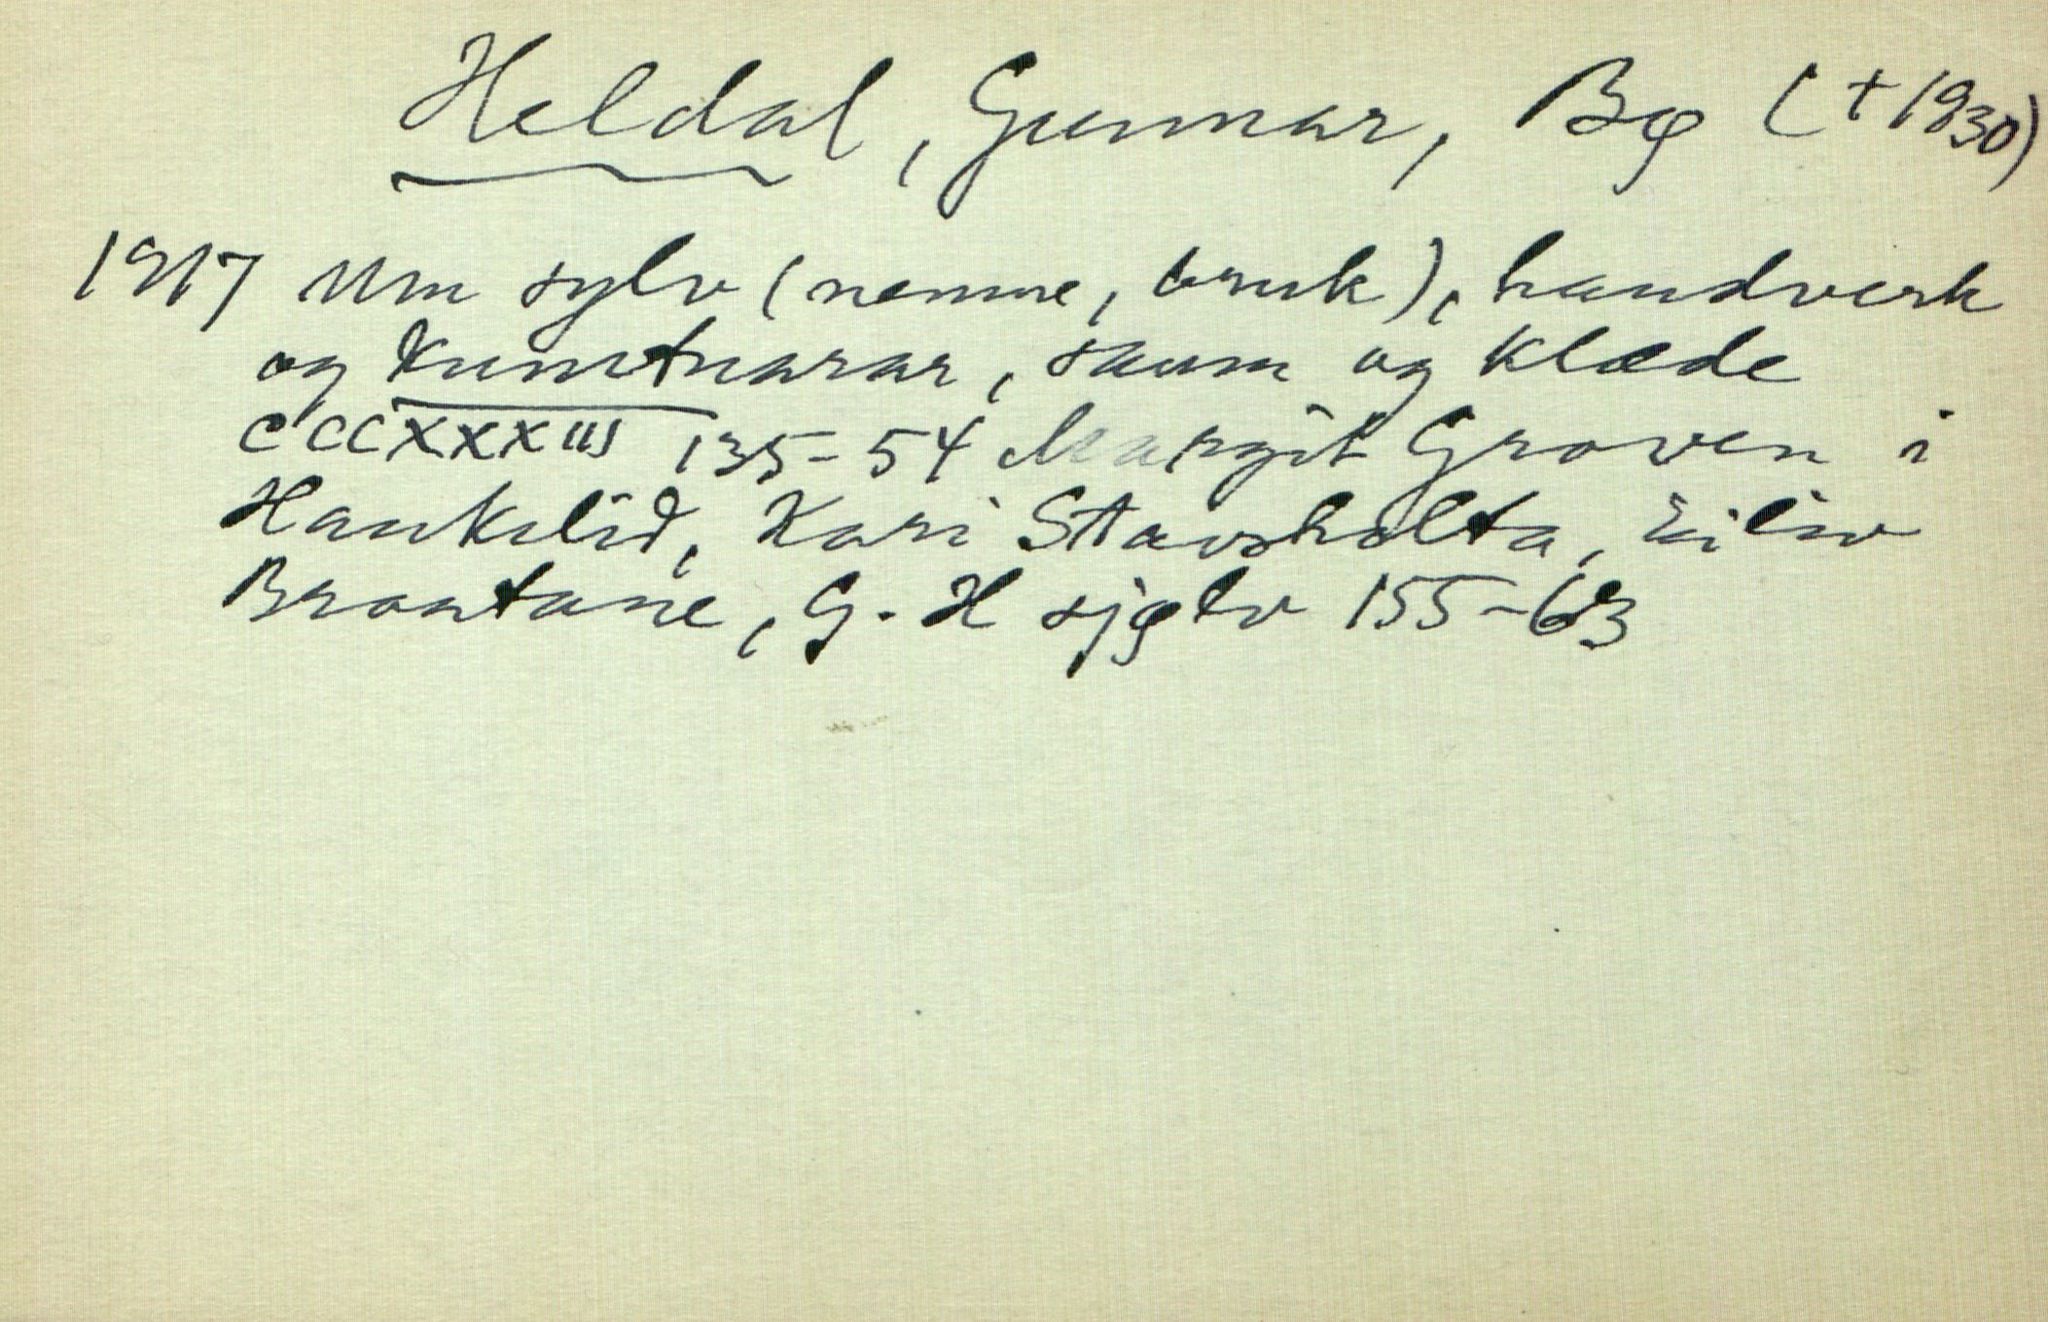 Heldal, Gunnar, Bø (+1930)
1917 Um sylv (nemne, bruk), handverk
og kunstnarar, saum og klæde
CCCXXXIII 135-54 Margit Groven i
Haukelid, Kari Stavsholta, Eiliv
Brontane, G. H sjølv 155-63